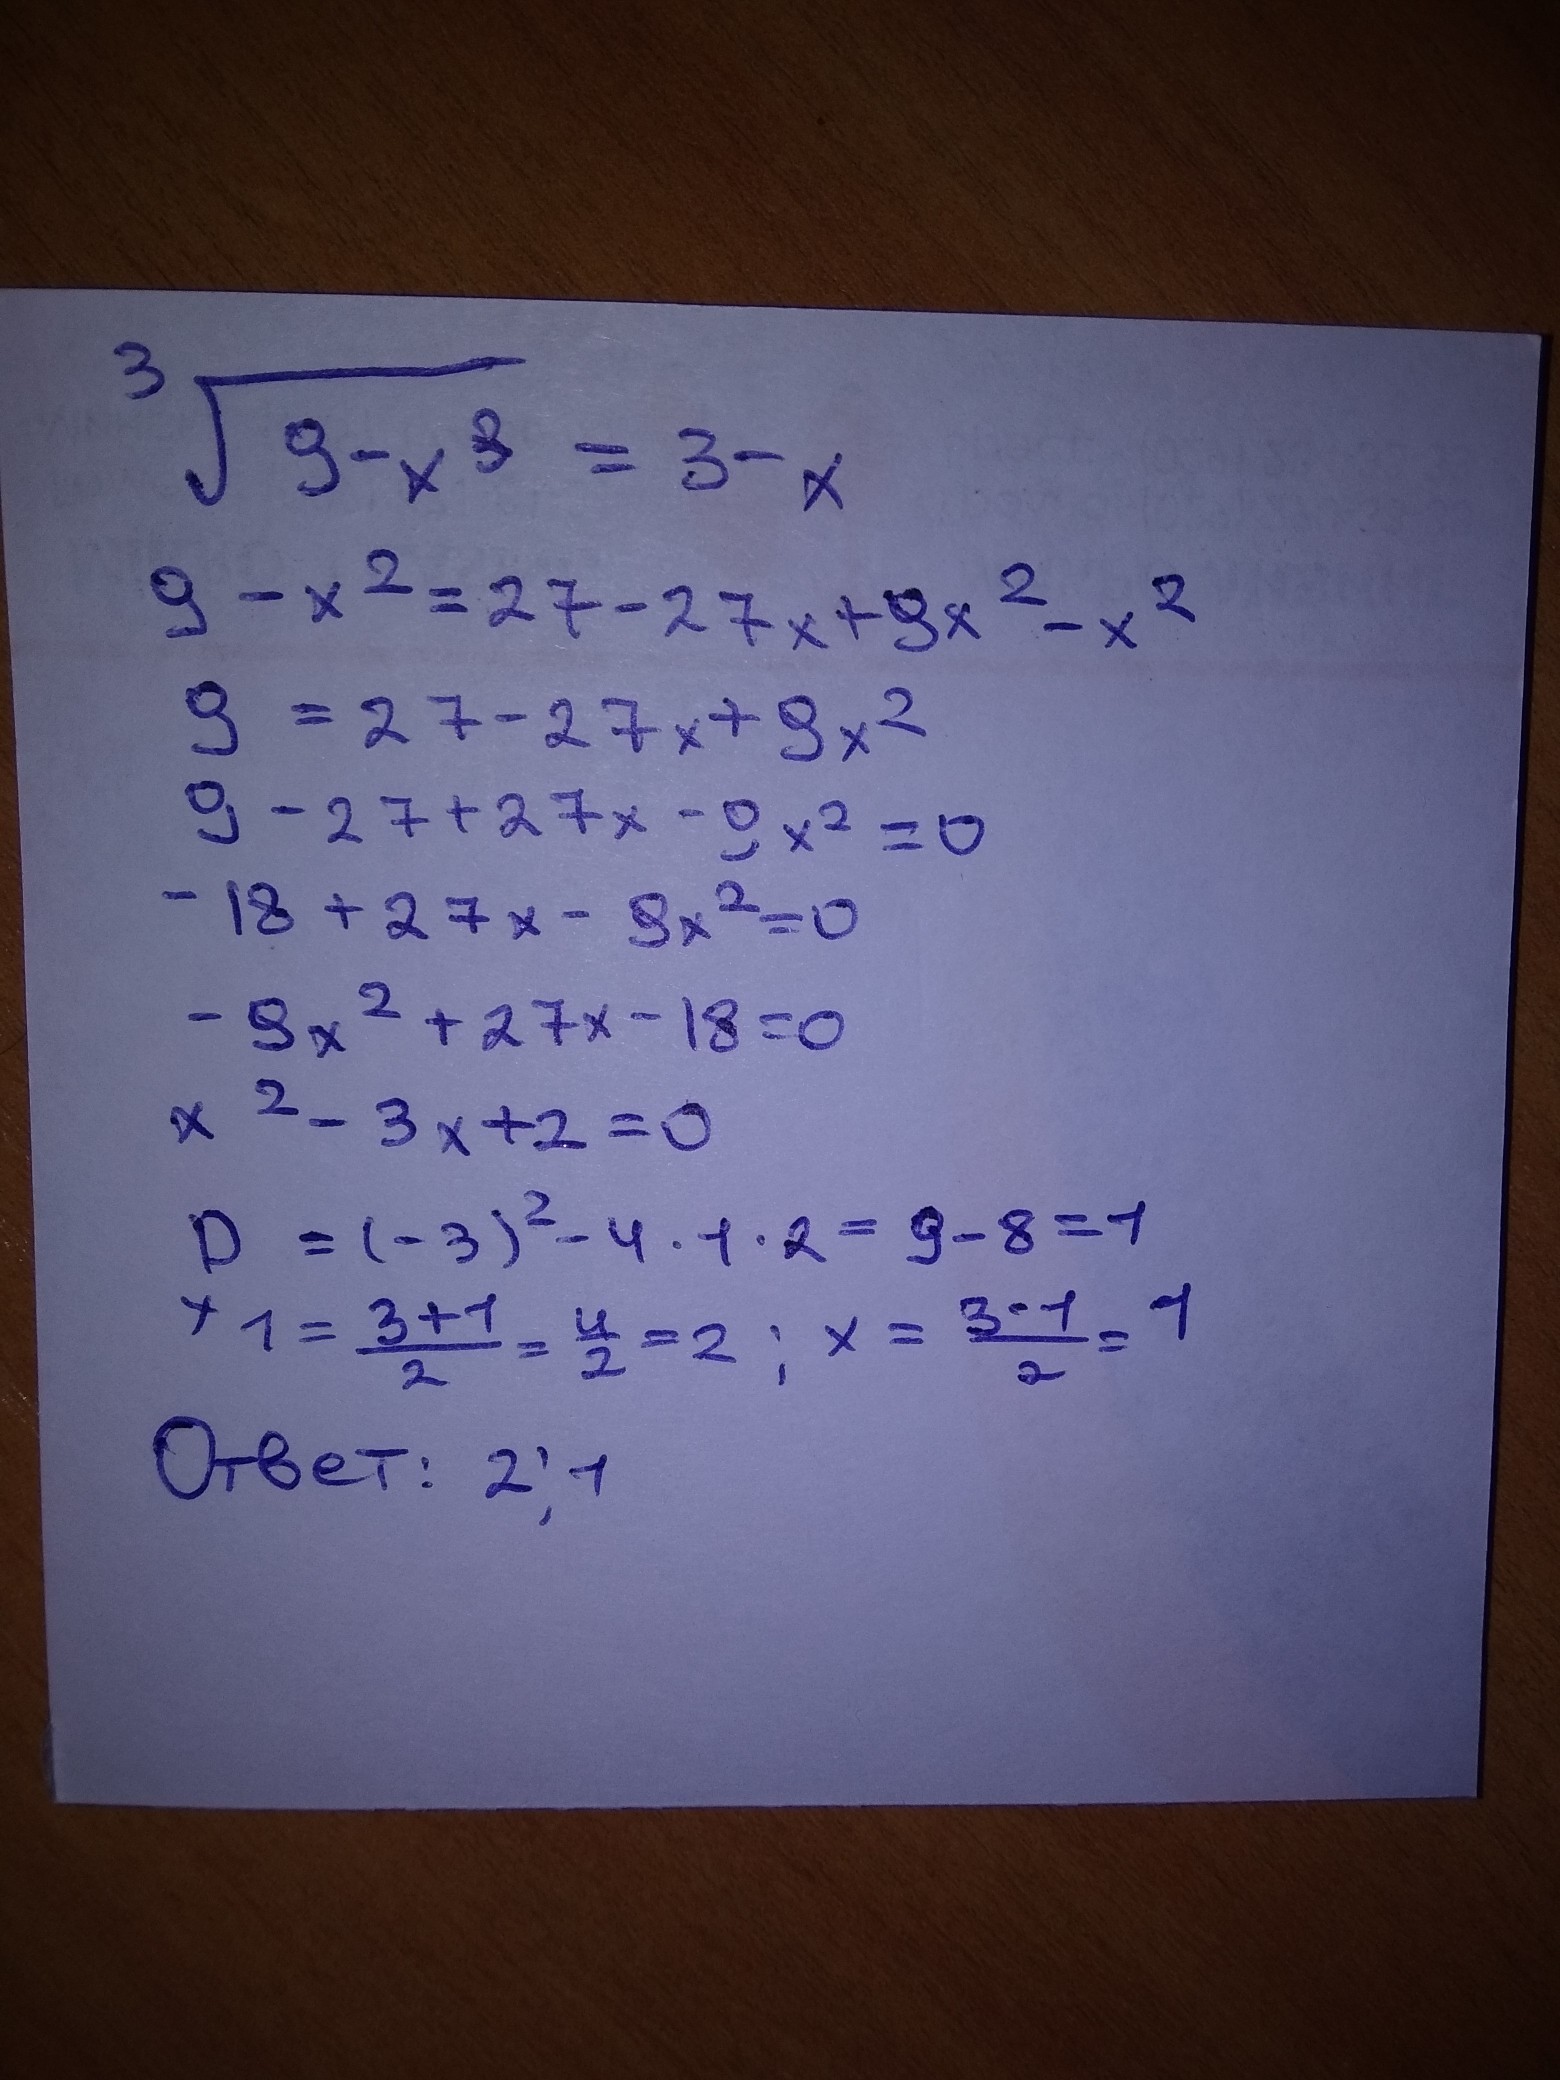 ³√9-x³ = 3-x
9-x²=27-27x+9x²-x²
9=27-27x+9x²
9-27+27x-9x²=0
-18+27x-9x²=0
-9x²+27x-18=0
x²-3x+2=0
D=(-3)²-4·1·2=9-8=1
x1=3+1/2=4/2=2; x=3-1/2=1
Ответ: 2;1